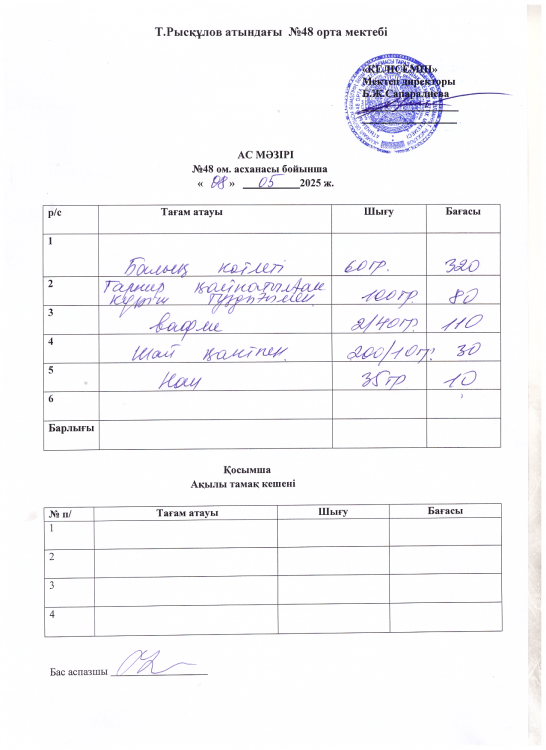 Т.Рысқұлов атындағы №48 орта мектебі
«КЕЛІСЕМІН»
Мектеп директоры
Б.Ж.Сапаралиева
АС МӘЗІРІ
№48 ом. асханасы бойынша
« 08 » 05 2025 ж.
р/с Тағам атауы Шығу Бағасы
1 Балық котлеті 60гр. 320
2 Гарнир қайнатылған
күріш тұздығымен 100гр 80
3 вафли 2/40гр. 110
4 Шай қантпен 200/10гр. 30
5 Нан 35гр 10
6
Барлығы
Қосымша
Ақылы тамақ кешені
№ п/ Тағам атауы Шығу Бағасы
1
2
3
4
Бас аспазшы